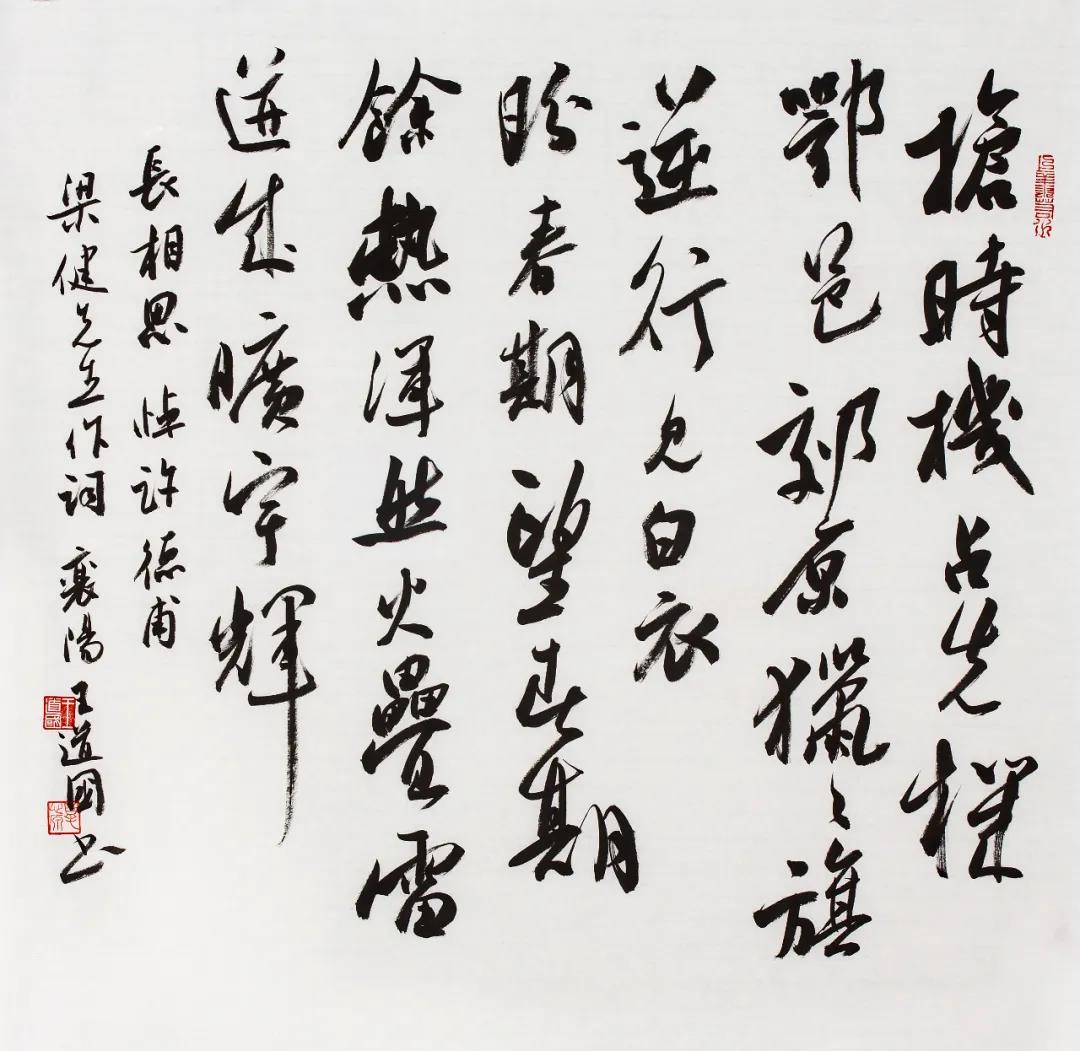 搶時機占先機
鄂邑郊原獵〻旗
逆行見白衣
盼春期望春期
餘熱渾然火疊雷
迸成曠宇輝
長相思 悼許德甫
梁健先生作詞 襄陽王道國書